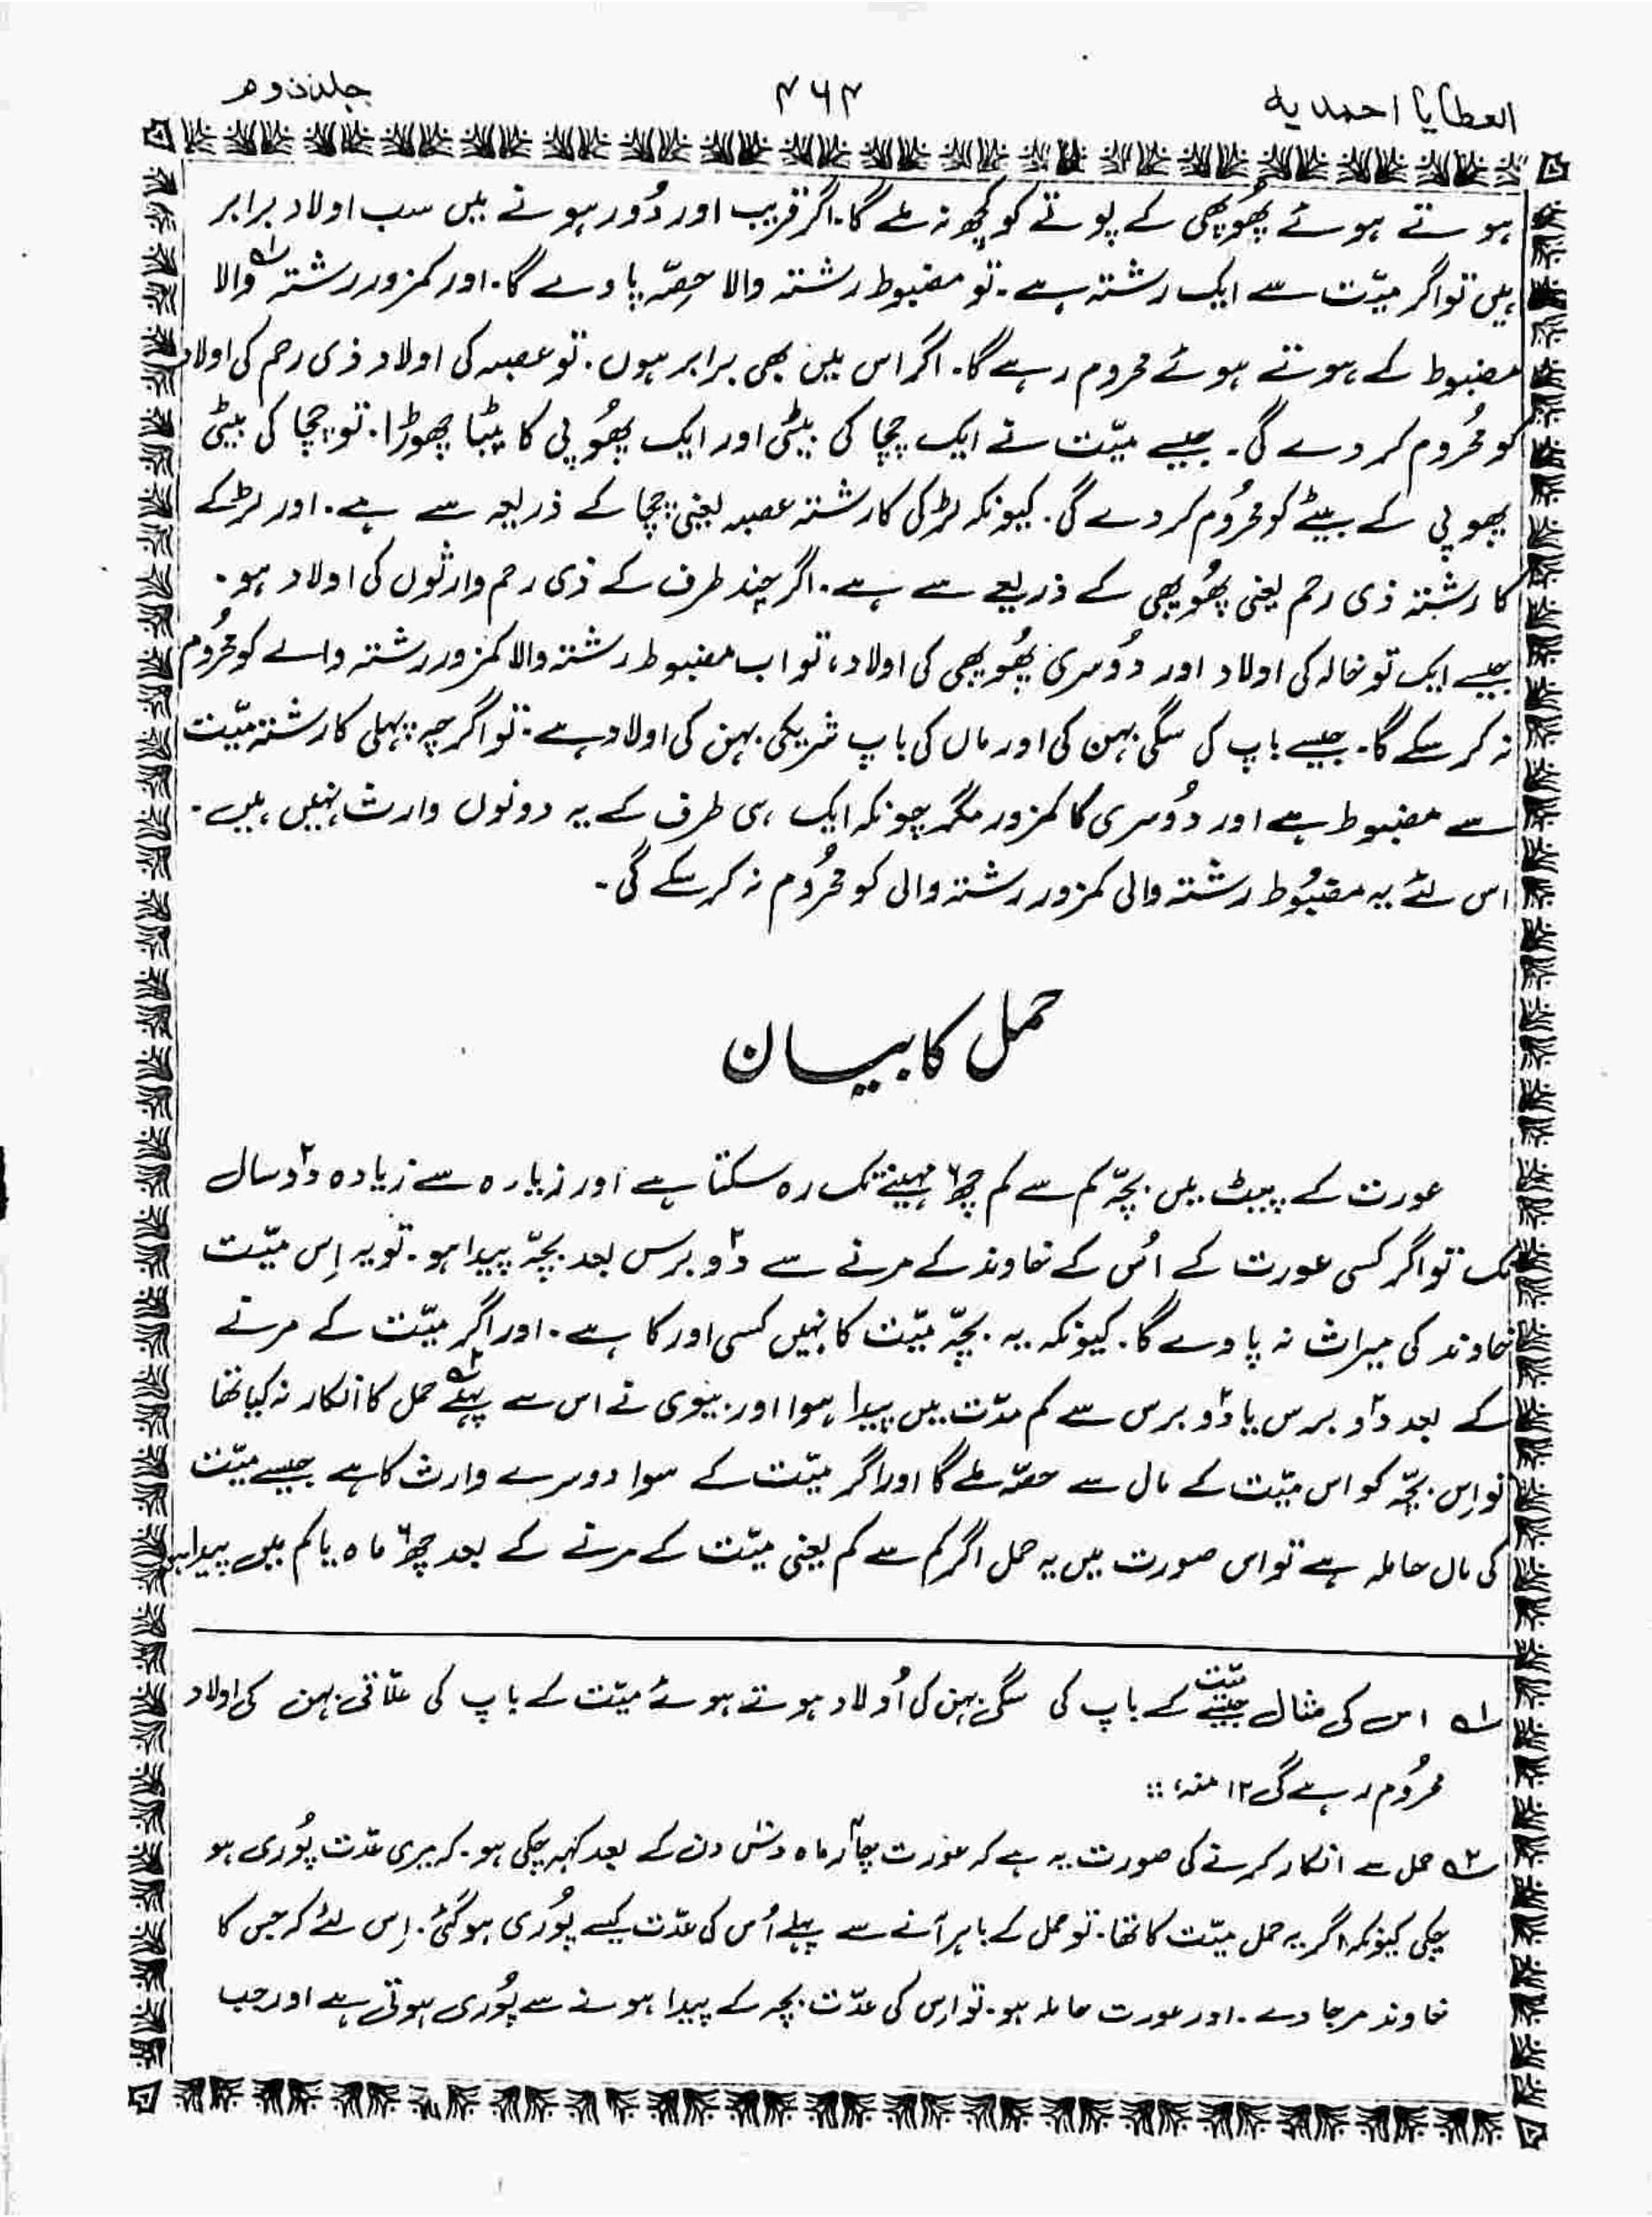 العطایا احمدیه
۴۶۴
جلد دوم
ہوتے ہوئے پھُوپھی کے پوتے کو کچھ نہ ملے گا۔ اگر قریب اور دُور ہونے میں سب اولاد برابر
ہیں تو اگر میّت سے ایک رشتہ ہے۔ تو مضبوط رشتہ والا حِصّہ پاوے گا۔ اور کمزور رشتہ ؎۱ والا
مضبوط کے ہوتے ہوئے محروم رہے گا۔ اگر اس میں بھی برابر ہوں۔ تو عصبہ کی اولاد ذی رحم کی اولاد
کو محُروم کر دے گی۔ جیسے میّت نے ایک چچا کی بیٹی اور ایک پھُوپی کا بیٹا چھوڑا۔ تو چچا کی بیٹی
پھوپی کے بیٹے کو محُروم کر دے گی۔ کیونکہ لڑکی کا رشتہ عصبہ یعنی چچا کے ذریعہ سے ہے۔ اور لڑکے
کا رشتہ ذی رحم یعنی پھُوپھی کے ذریعے سے ہے۔ اگر چند طرف کے ذی رحم وارثوں کی اولاد ہو۔
جیسے ایک تو خالہ کی اولاد اور دُوسری پھُوپھی کی اولاد، تو اب مضبوط رشتہ والا کمزور رشتہ والے کو محُروم
نہ کر سکے گا۔ جیسے باپ کی سگی بہن کی اور ماں کی باپ شریکی بہن کی اولاد ہے۔ تو اگرچہ پہلی کا رشتہ میّت
سے مضبوط ہے اور دُوسری کا کمزور مگر چونکہ ایک ہی طرف کے یہ دونوں وارث نہیں ہیں۔
اس لئے یہ مضبُوط رشتہ والی کمزور رشتہ والی کو محُروم نہ کر سکے گی۔
حمل کا بیان
عورت کے پیٹ میں بچّہ کم سے کم چھ۶ مہینے تک رہ سکتا ہے اور زیادہ سے زیادہ دو۲ سال
تک تو اگر کسی عورت کے اُس کے خاوند کے مرنے سے دو۲ برس بعد بچّہ پیدا ہو۔ تو یہ اِس میّت
خاوند کی میراث نہ پاوے گا۔ کیونکہ یہ بچّہ میّت کا نہیں کسی اور کا ہے۔ اور اگر میّت کے مرنے
کے بعد دو۲ برس یا دو۲ برس سے کم مدّت میں پیدا ہوا اور بیوی نے اس سے پہلے ؎۲ حمل کا انکار نہ کیا تھا
تو اِس بچّہ کو اس میّت کے مال سے حصّہ ملے گا اور اگر میّت کے سوا دوسرے وارث کا ہے جیسے میّت
کی ماں حاملہ ہے تو اس صورت میں یہ حمل اگر کم سے کم یعنی میّت کے مرنے کے بعد چھ۶ ماہ یا کم میں پیدا ہو
؎۱ اس کی مثال جیسے میّت کے باپ کی سگی بہن کی اُولاد ہوتے ہوئے میّت کے باپ کی علّاتی بہن کی اولاد
محُروم رہے گی ۱۲ منہ؛ ::
؎۲ حمل سے انکار کرنے کی صورت یہ ہے کہ عورت چار۴ ماہ دس۱۰ دن کے بعد کہہ چکی ہو۔ کہ میری عدّت پُوری ہو
چکی کیونکہ اگر یہ حمل میّت کا تھا۔ تو حمل کے باہر آنے سے پہلے اُس کی عدّت کیسے پُوری ہو گئی۔ اِس لئے کہ جس کا
خاوند مر جاوے۔ اور عورت حاملہ ہو۔ تو اِس کی عدّت بچہ کے پیدا ہونے سے پُوری ہوتی ہے اور جب